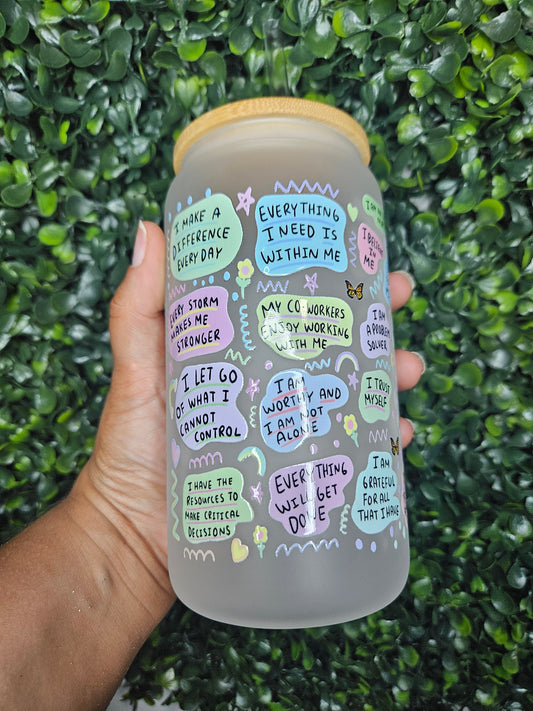 I MAKE A
DIFFERENCE
EVERY DAY
EVERYTHING
I NEED IS
WITHIN ME
I AM
I BELIEVE
IN
ME
EVERY STORM
MAKES ME
STRONGER
MY CO-WORKERS
ENJOY WORKING
WITH ME
I AM
A PROBLEM
SOLVER
I LET GO
OF WHAT I
CANNOT
CONTROL
I AM
WORTHY AND
I AM NOT
ALONE
I TRUST
MYSELF
I HAVE THE
RESOURCES TO
MAKE CRITICAL
DECISIONS
EVERYTHING
WILL GET
DONE
I AM
GRATEFUL
FOR ALL
THAT I HAVE